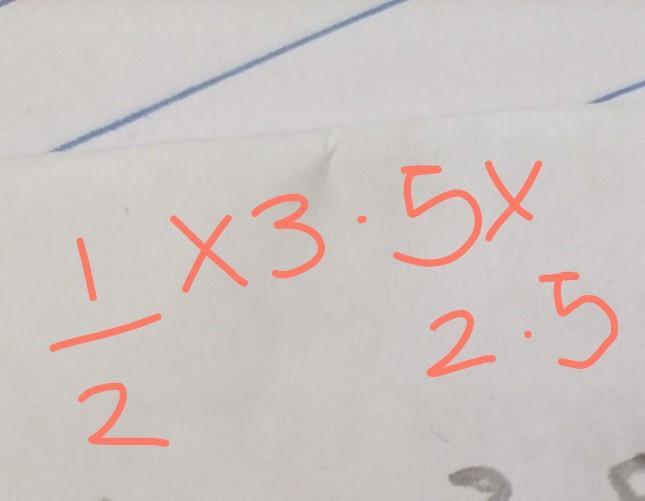 1/2 × 3.5 ×
2.5